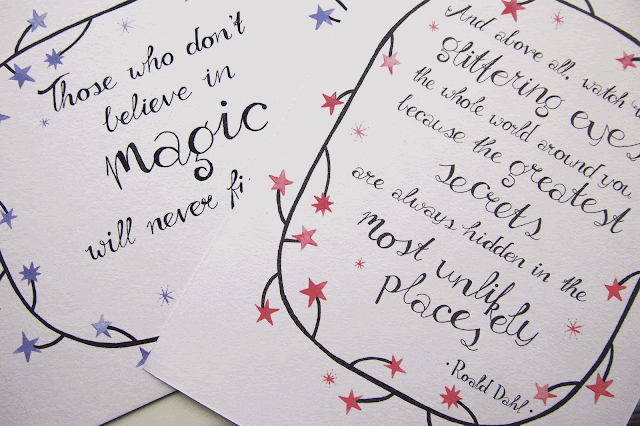 Those who don't
believe in
magic
will never fi
And above all, watch
glittering eyes
the whole world around you
because the greatest
secrets
are always hidden in the
most unlikely
places
· Roald Dahl ·